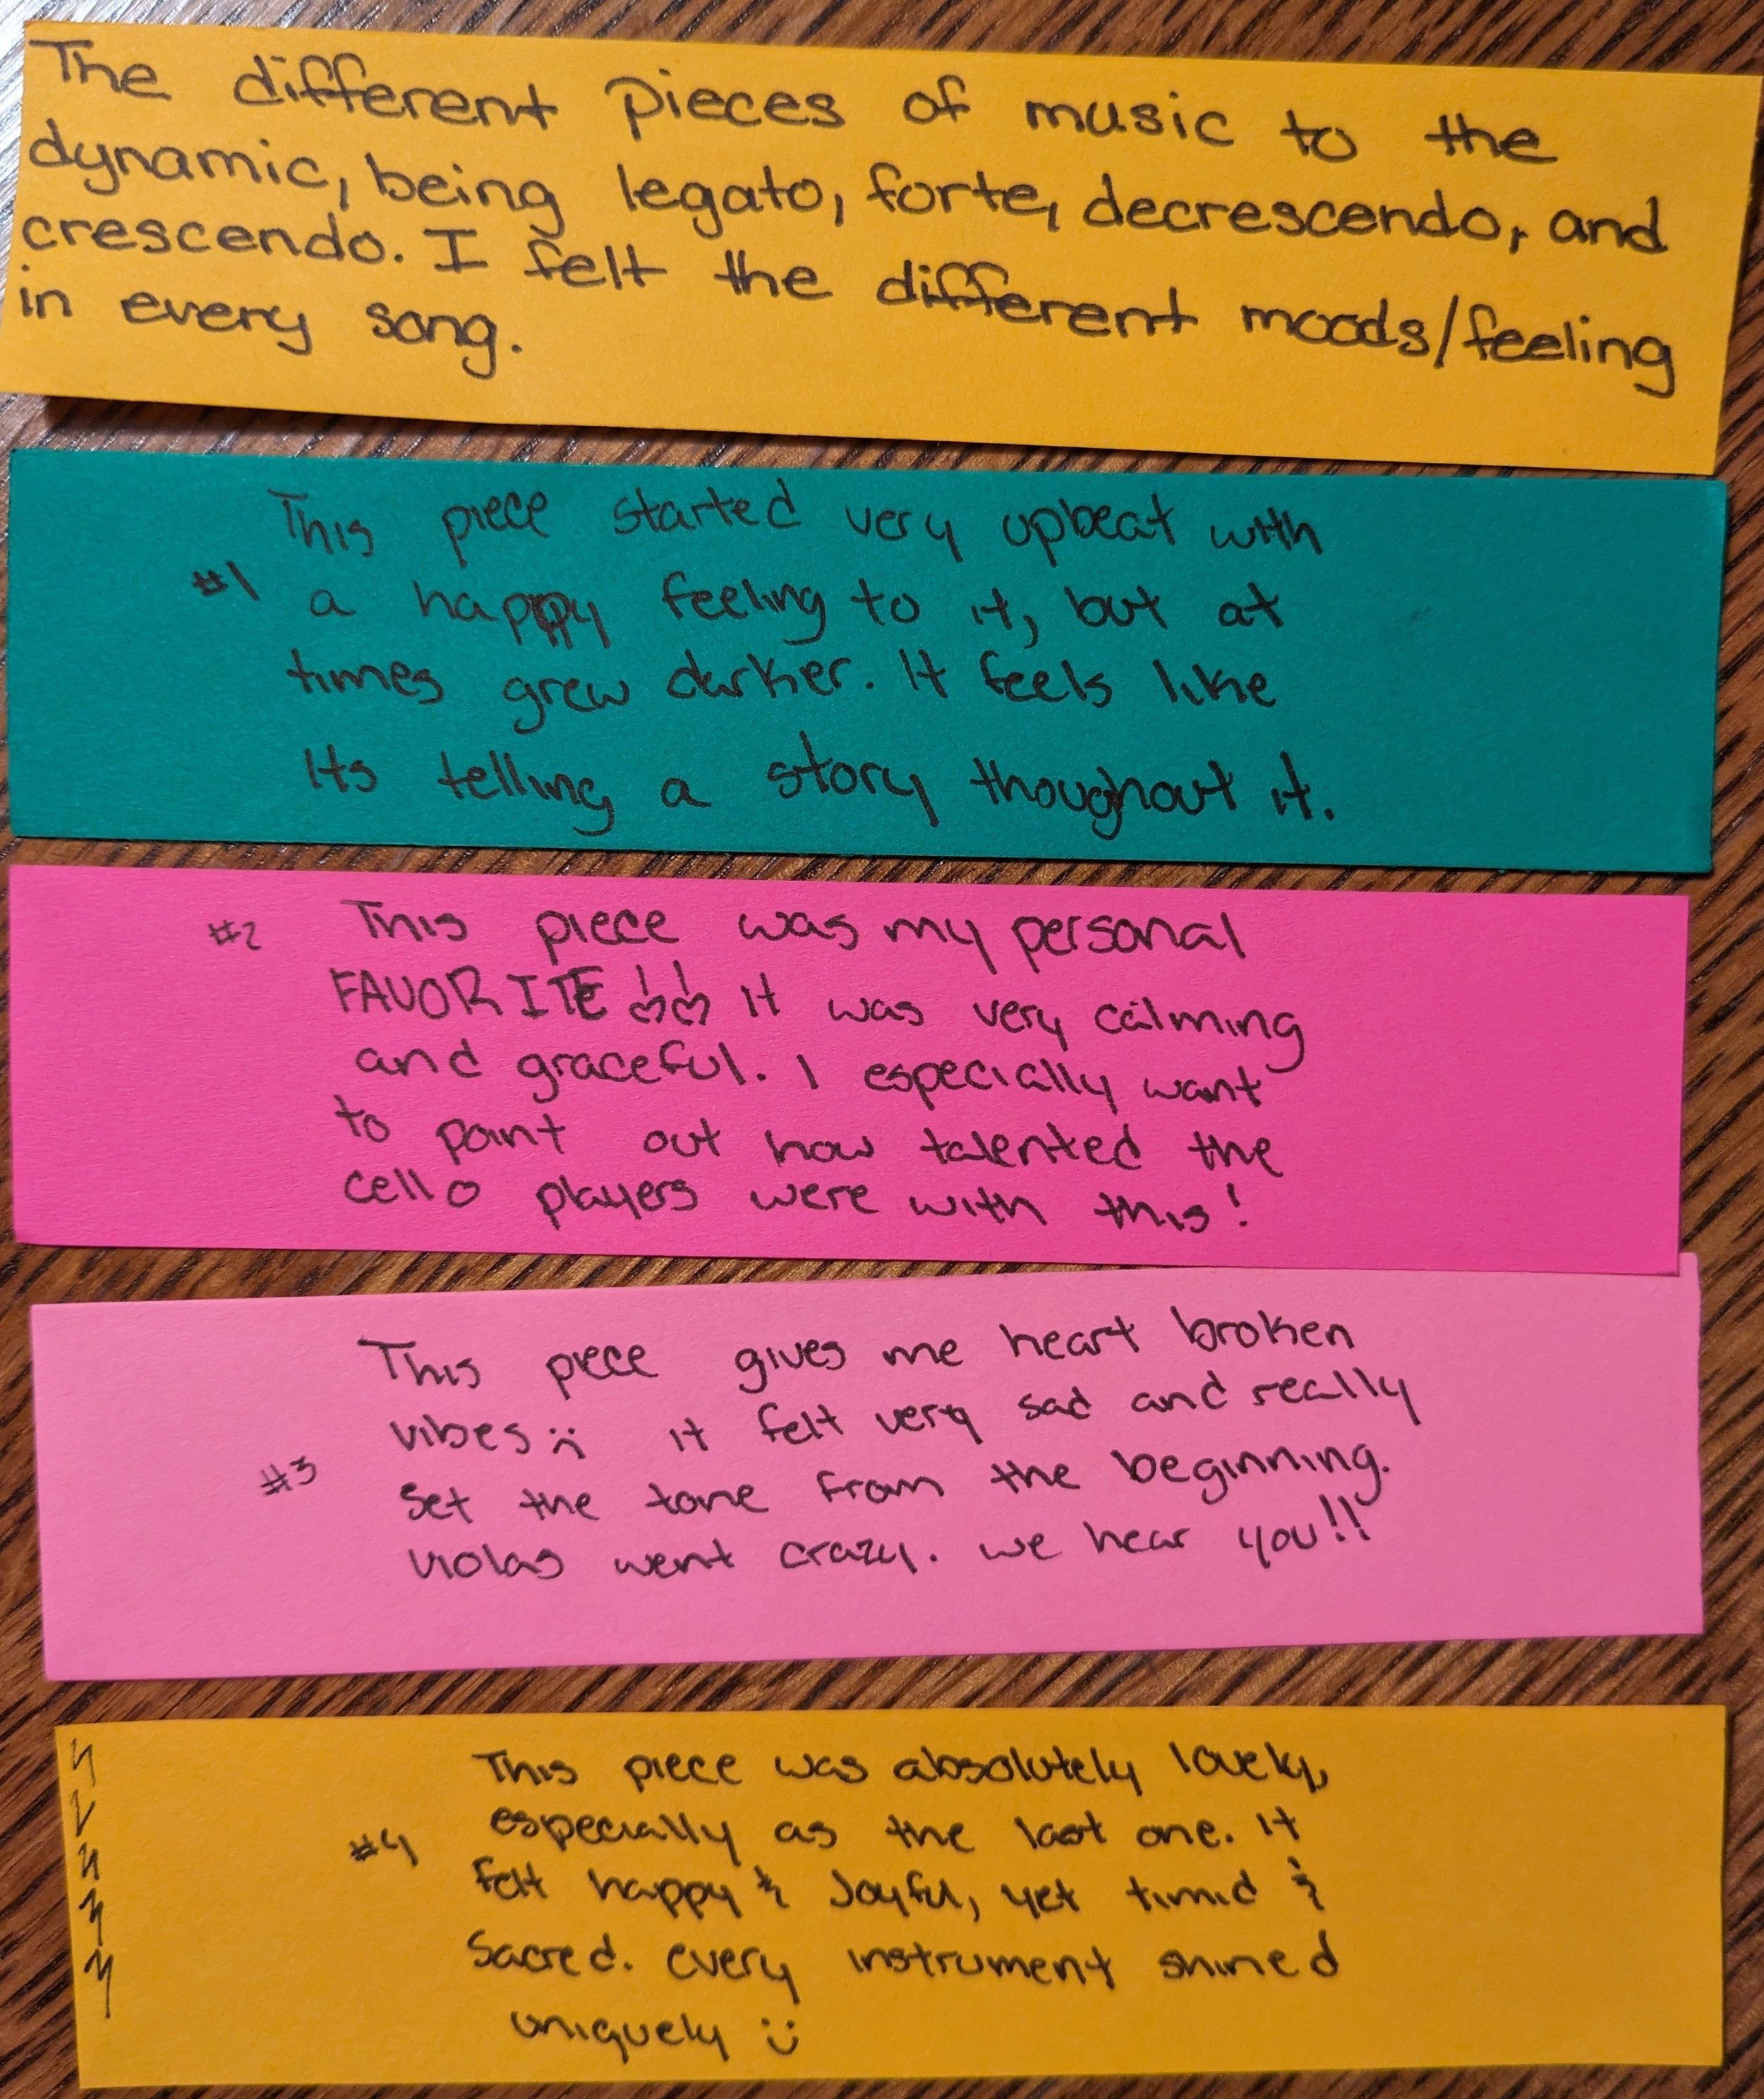 The different pieces of music to the
dynamic, being legato, forte, decrescendo, and
crescendo. I felt the different moods/feeling
in every song.
This piece started very upbeat with
#1 a happy feeling to it, but at
times grew darker. It feels like
Its telling a story thoughout it.
#2 This piece was my personal
FAVORITE !! It was very calming
and graceful. I especially want
to point out how talented the
cello players were with this!
This piece gives me heart broken
vibes :( it felt very sad and really
#3 set the tone from the beginning.
violas went crazy. we hear you!!
This piece was absolutely lovely,
especially as the last one. It
#4 felt happy & Joyful, yet timid &
Sacred. every instrument shined
uniquely :)